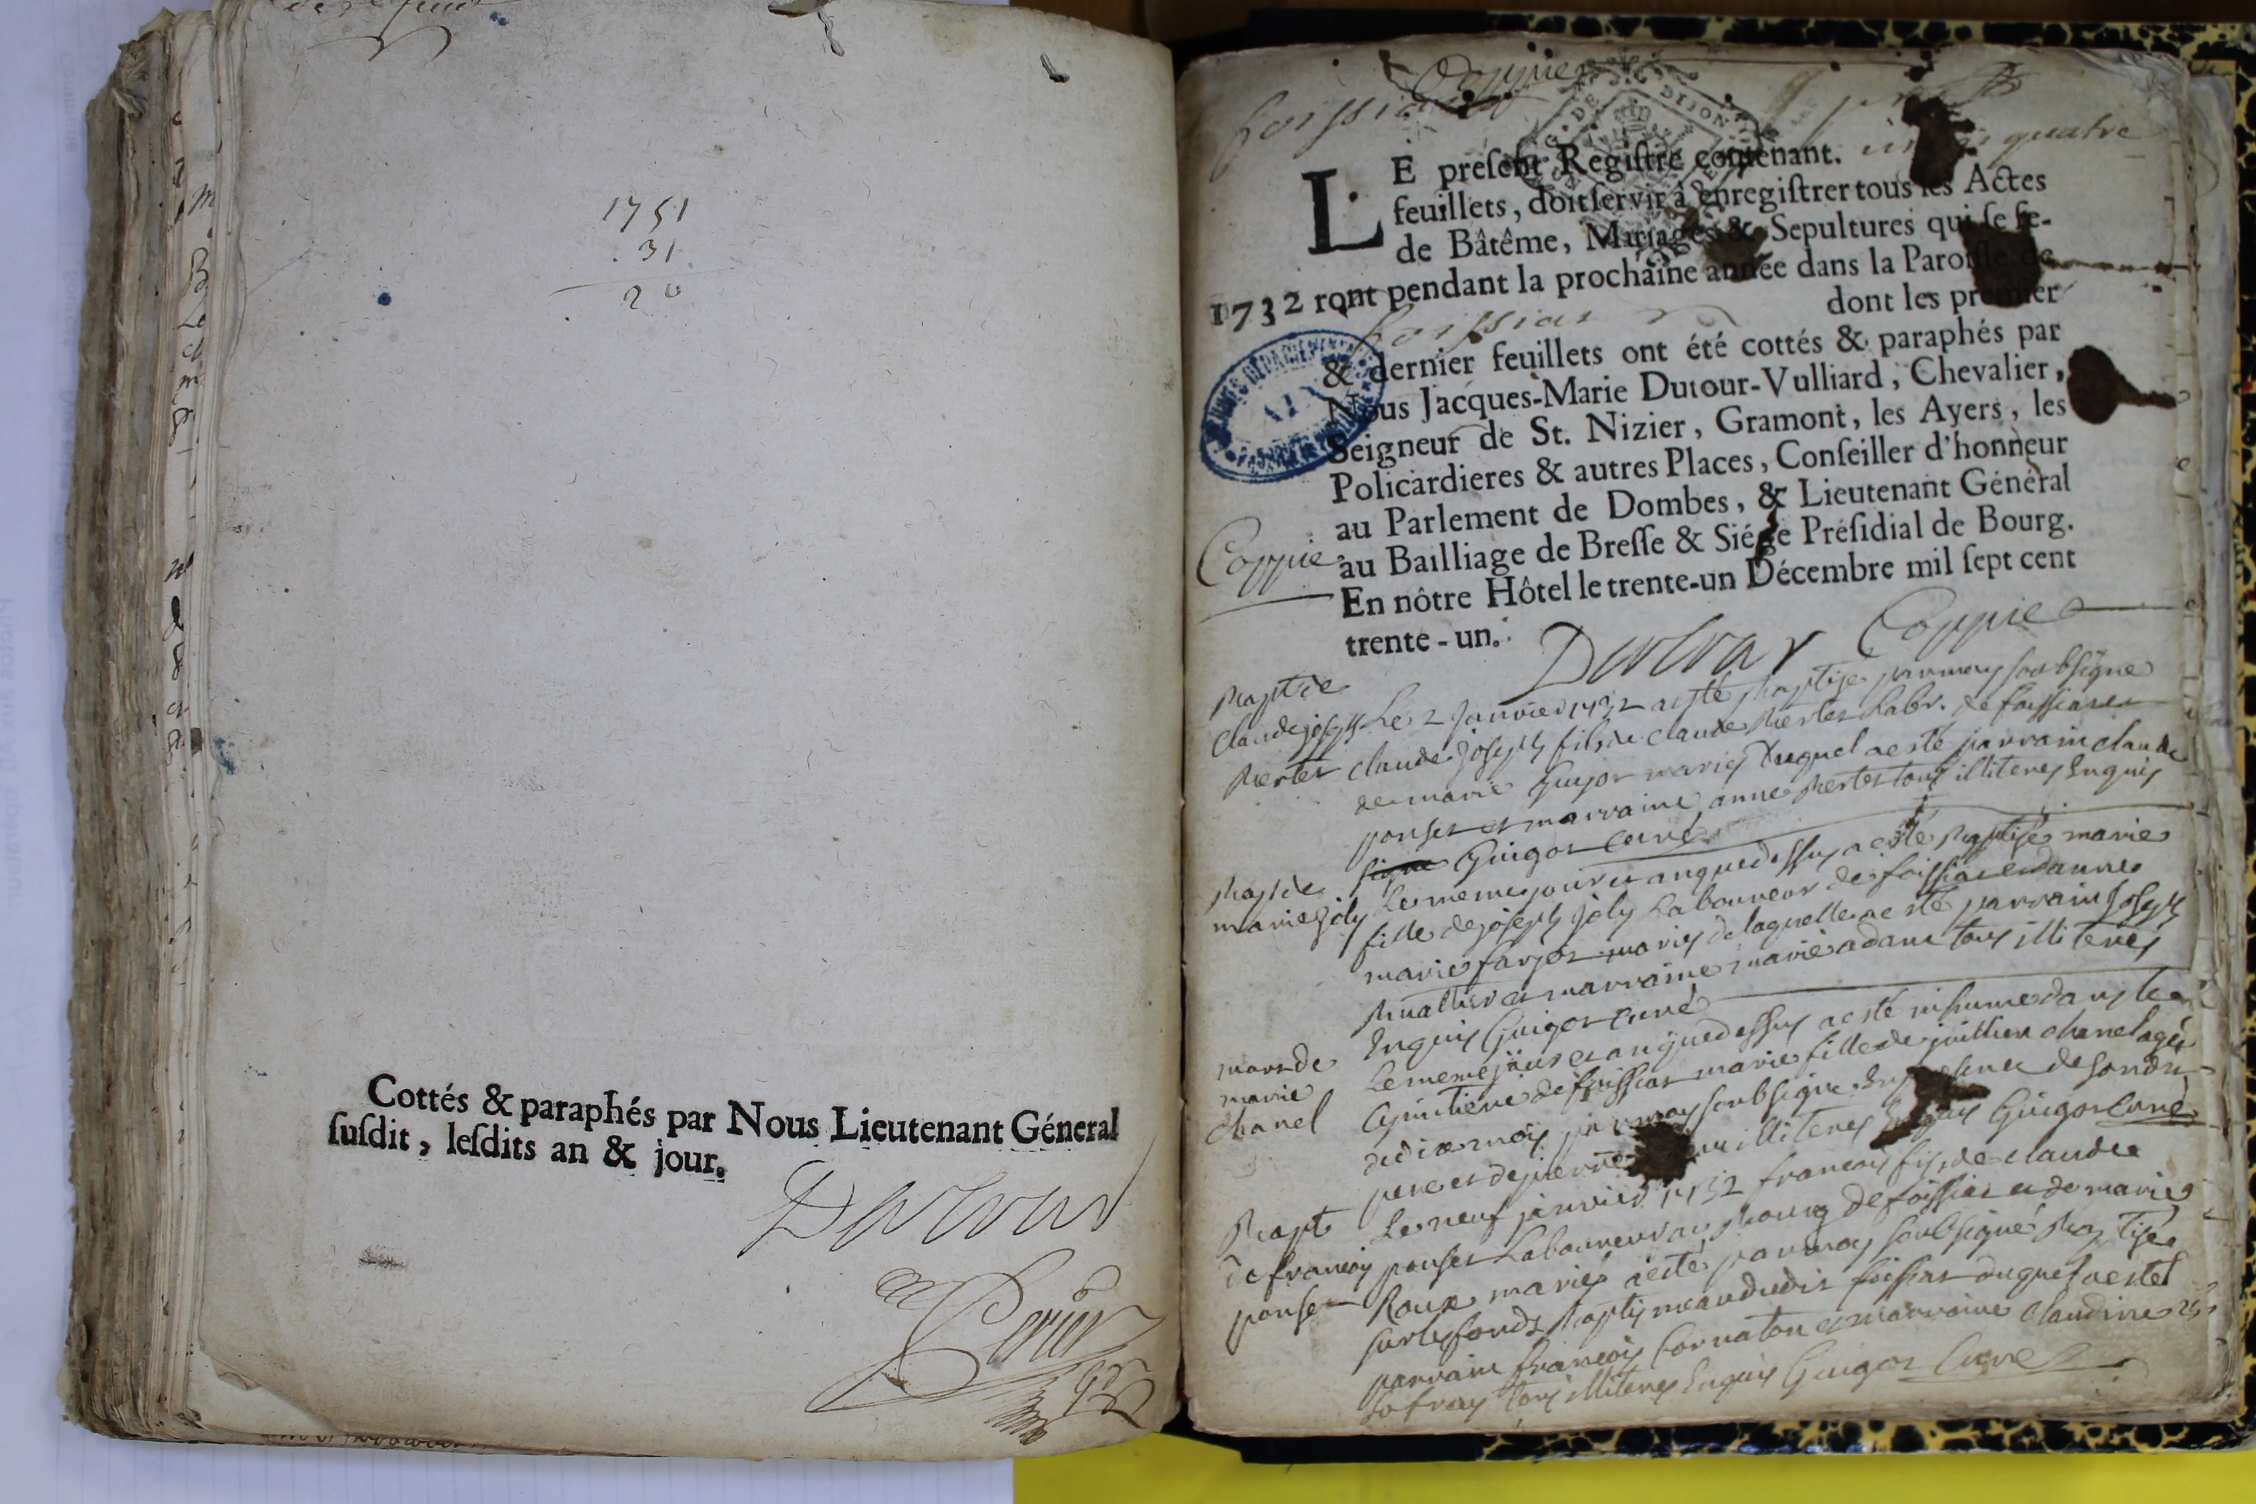 1751
31
20
Cottés & paraphés par Nous Lieutenant Géneral
ſuſdit, leſdits an & jour.
Coppie
foissiat
quatre
LE preſent Regiſtre contenant.
feuillets, doit ſervir à enregiſtrer tous les Actes
de Bâtême, Mariages & Sepultures qui ſe fe-
1732 ront pendant la prochaine année dans la Paroiſſe de
foissiat dont les premier
& dernier feuillets ont été cottés & paraphés par
Nous Jacques-Marie Dutour-Vulliard, Chevalier,
Seigneur de St. Nizier, Gramont, les Ayers, les
Policardieres & autres Places, Conſeiller d'honneur
au Parlement de Dombes, & Lieutenant Général
Coppie
au Bailliage de Breſſe & Siége Préſidial de Bourg.
En nôtre Hôtel le trente-un Décembre mil ſept cent
trente-un.
Coppie
claude joseph Le 2 janvier 1732 a esté baptisé par moy soubsigné
claude joseph fils de claude labr. de foissiat et
de marie guyot mariés duquel a esté parrain claude
ponset et marraine anne tous illiterés enquis
signé Guigot curé
marie joly Le meme jour et an que dessus a esté baptisé marie
fille de joseph joly Laboureur de foissiat et danne
marie farjot mariés de laquelle a esté parrain joseph
et marraine marie adam tous illiterés
enquis Guigot curé
mort de Le meme jour et an que dessus a esté inhumé dans le
marie cymitiere de foissiat marie fille de jullien chanel agée
chanel de dix mois par moy soubsigné en presence de sondit
pere et de pierre illiterés enquis Guigot curé
Bapt Le neuf janvier 1732 francois fils de claude
de francois ponset Laboureur au bourg de foissiat et de marie
ponset Roux mariés a esté par moy soubsigné baptisé
sur les fonds baptismeaux dudit foissiat duquel a esté
parrain francois cornaton et marraine claudine
tous illiterés enquis Guigot curé